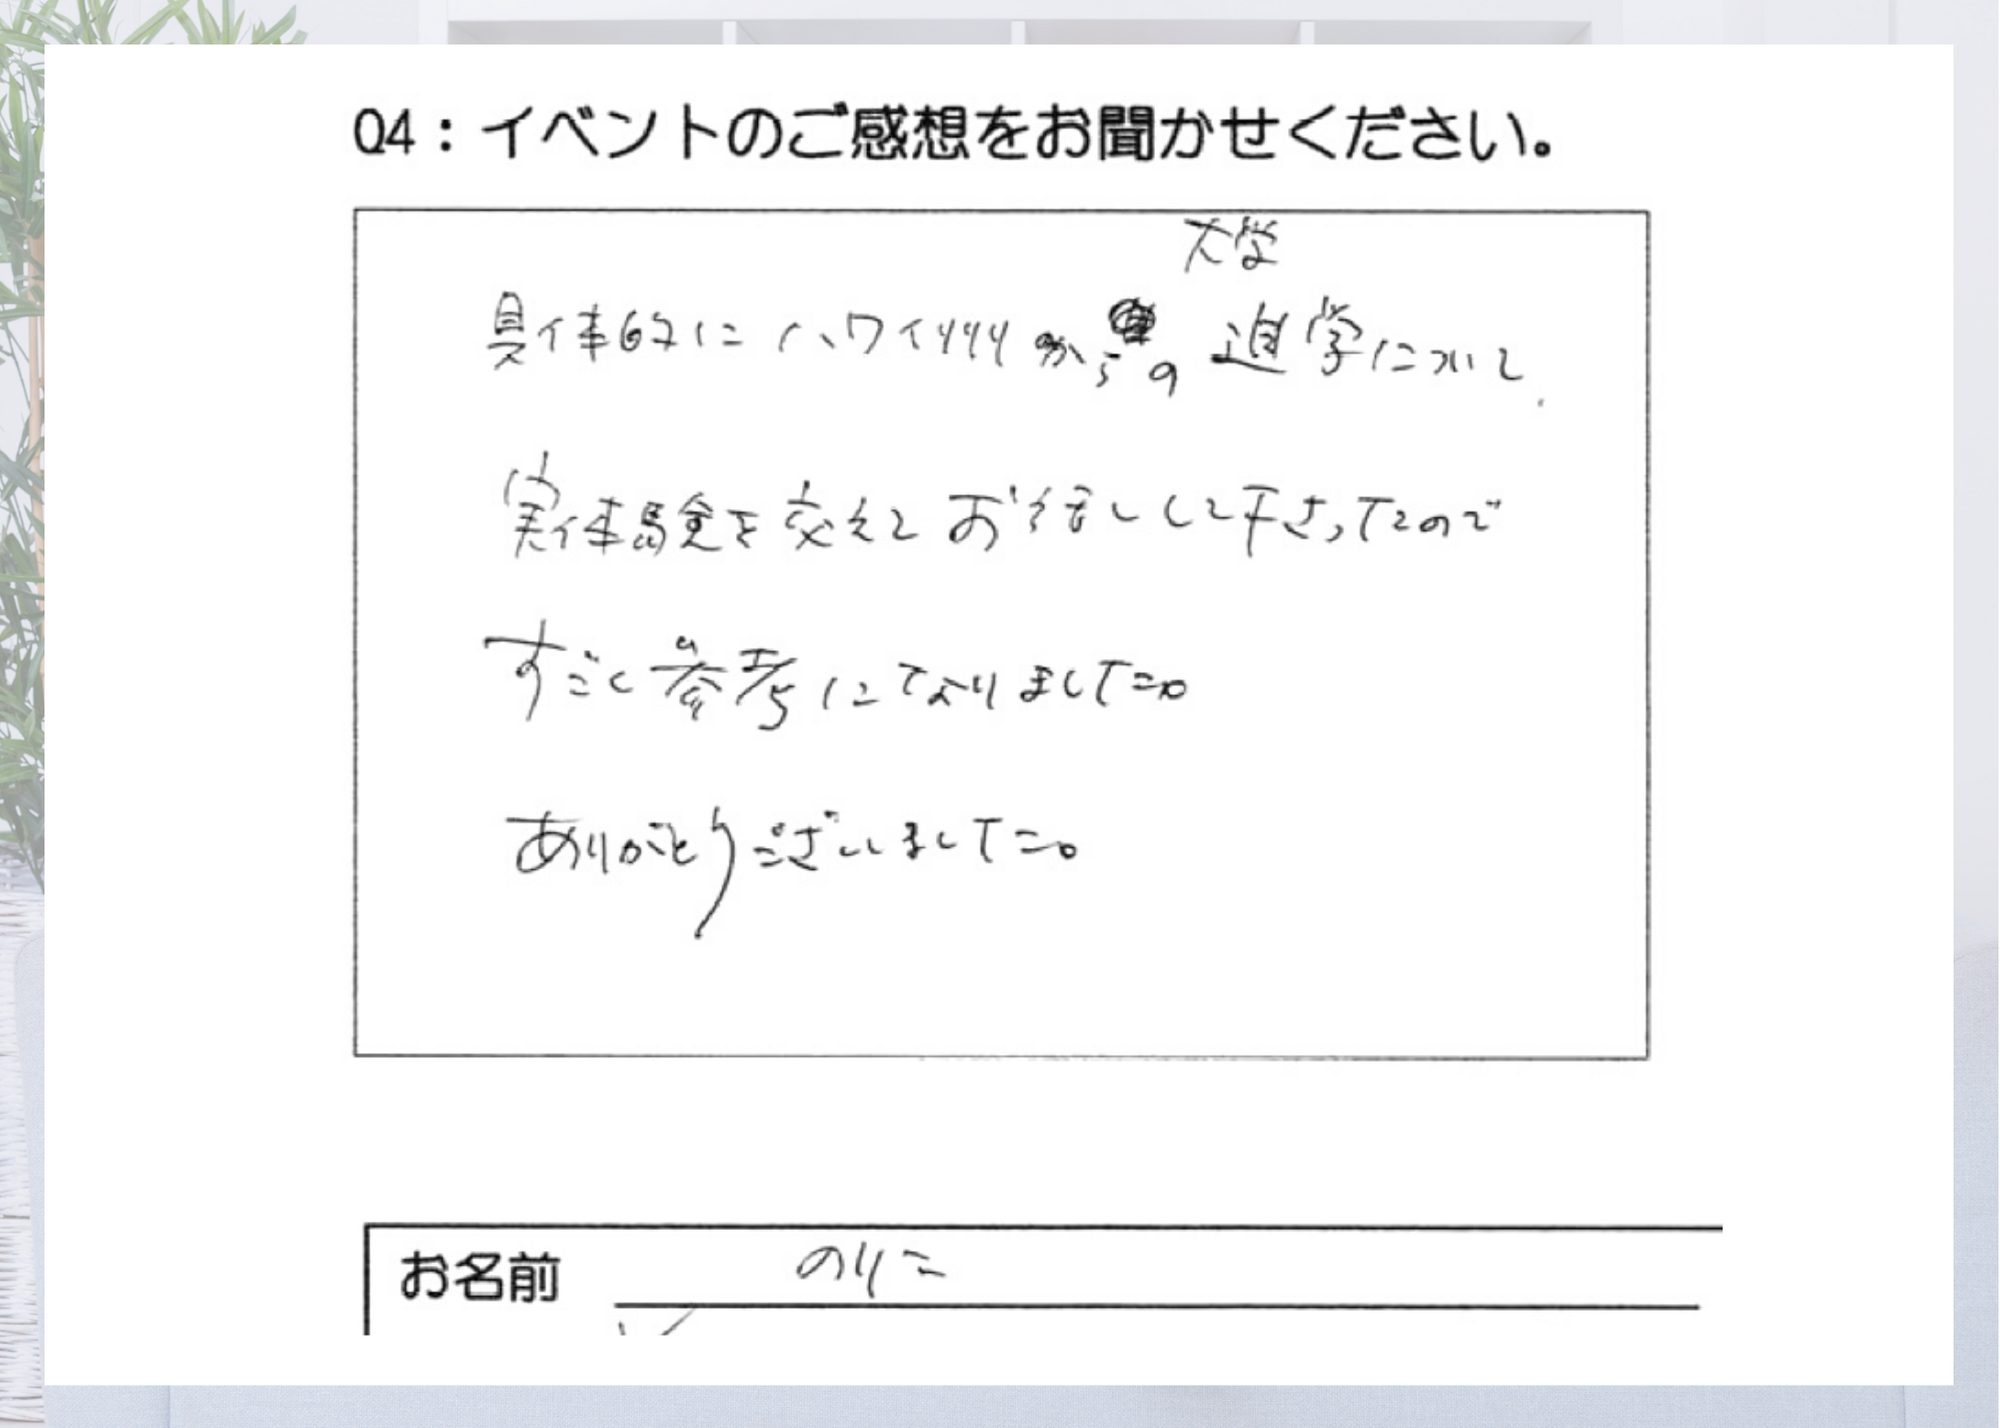 Q4：イベントのご感想をお聞かせください。
大学
具体的にハワイ州からの進学について、
実体験を交えてお話しして下さったので
すごく参考になりました。
ありがとうございました。
お名前 のりこ